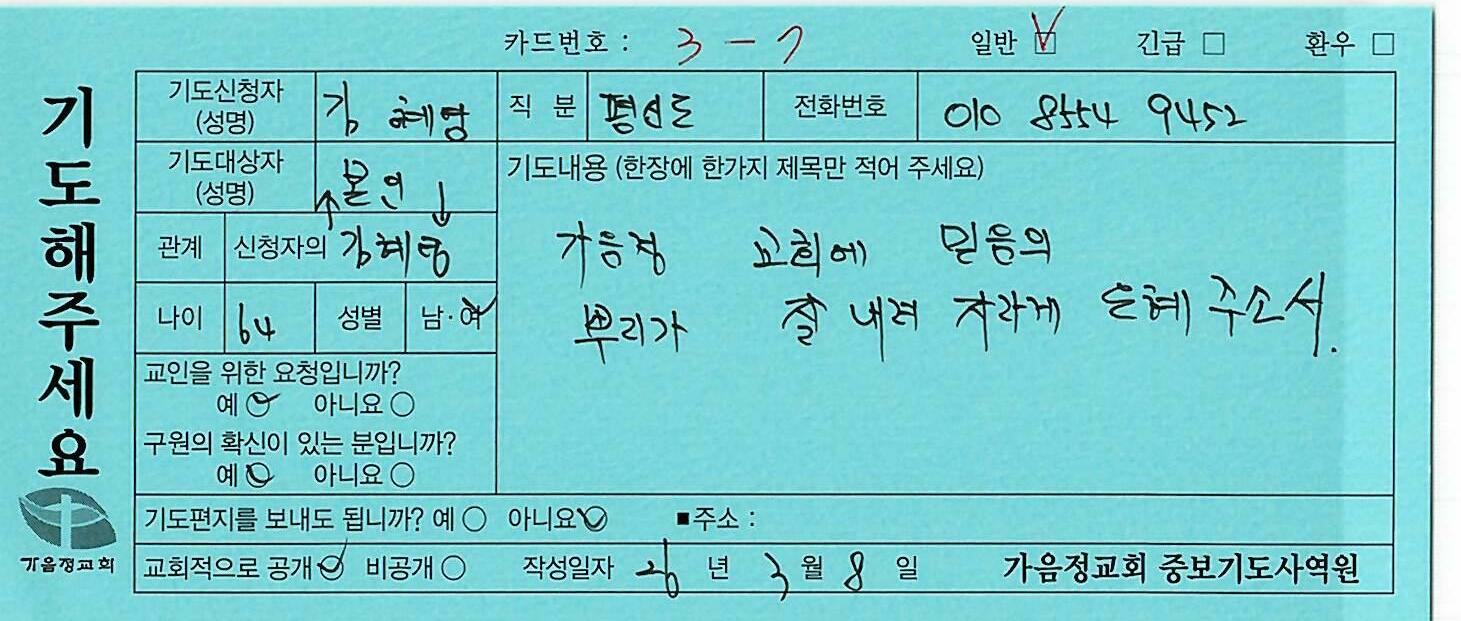 카드번호 : 3 - 7 일반 ☑ 긴급 □ 환우 □
기도해주세요
가음정교회
기도신청자 (성명) 김혜영 직 분 평신도 전화번호 010 8554 9452
기도대상자 (성명) 본인
관계 신청자의 김혜영
나이 64 성별 남·여
교인을 위한 요청입니까?
예 ○ 아니요 ○
구원의 확신이 있는 분입니까?
예 ○ 아니요 ○
기도내용 (한장에 한가지 제목만 적어 주세요)
가음정 교회에 믿음의
뿌리가 잘 내려 자라게 은혜 주소서.
기도편지를 보내도 됩니까? 예 ○ 아니요 ○ ■주소 :
교회적으로 공개 ○ 비공개 ○ 작성일자 26 년 3 월 8 일 가음정교회 중보기도사역원